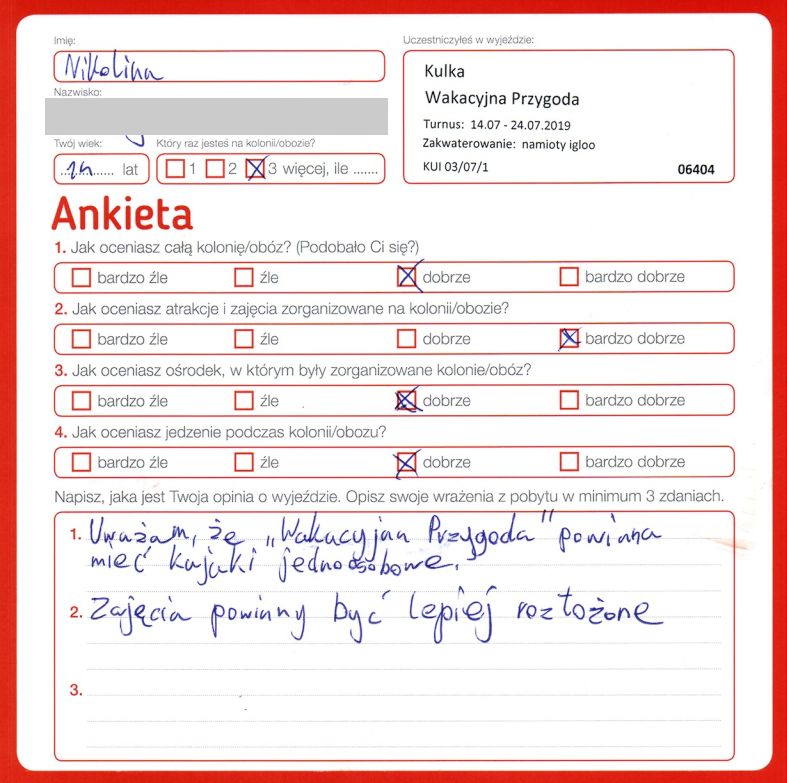 Imię:
Nikolina
Nazwisko:
Twój wiek:
Który raz jesteś na kolonii/obozie?
14 lat
1 2 3 więcej, ile .......
Uczestniczyłeś w wyjeździe:
Kulka
Wakacyjna Przygoda
Turnus: 14.07 - 24.07.2019
Zakwaterowanie: namioty igloo
KUI 03/07/1 06404
Ankieta
1. Jak oceniasz całą kolonię/obóz? (Podobało Ci się?)
bardzo źle źle dobrze bardzo dobrze
2. Jak oceniasz atrakcje i zajęcia zorganizowane na kolonii/obozie?
bardzo źle źle dobrze bardzo dobrze
3. Jak oceniasz ośrodek, w którym były zorganizowane kolonie/obóz?
bardzo źle źle dobrze bardzo dobrze
4. Jak oceniasz jedzenie podczas kolonii/obozu?
bardzo źle źle dobrze bardzo dobrze
Napisz, jaka jest Twoja opinia o wyjeździe. Opisz swoje wrażenia z pobytu w minimum 3 zdaniach.
1. Uważam, że „Wakacyjna Przygoda" powinna
mieć kajaki jednoosobowe.
2. Zajęcia powinny być lepiej rozłożone
3.